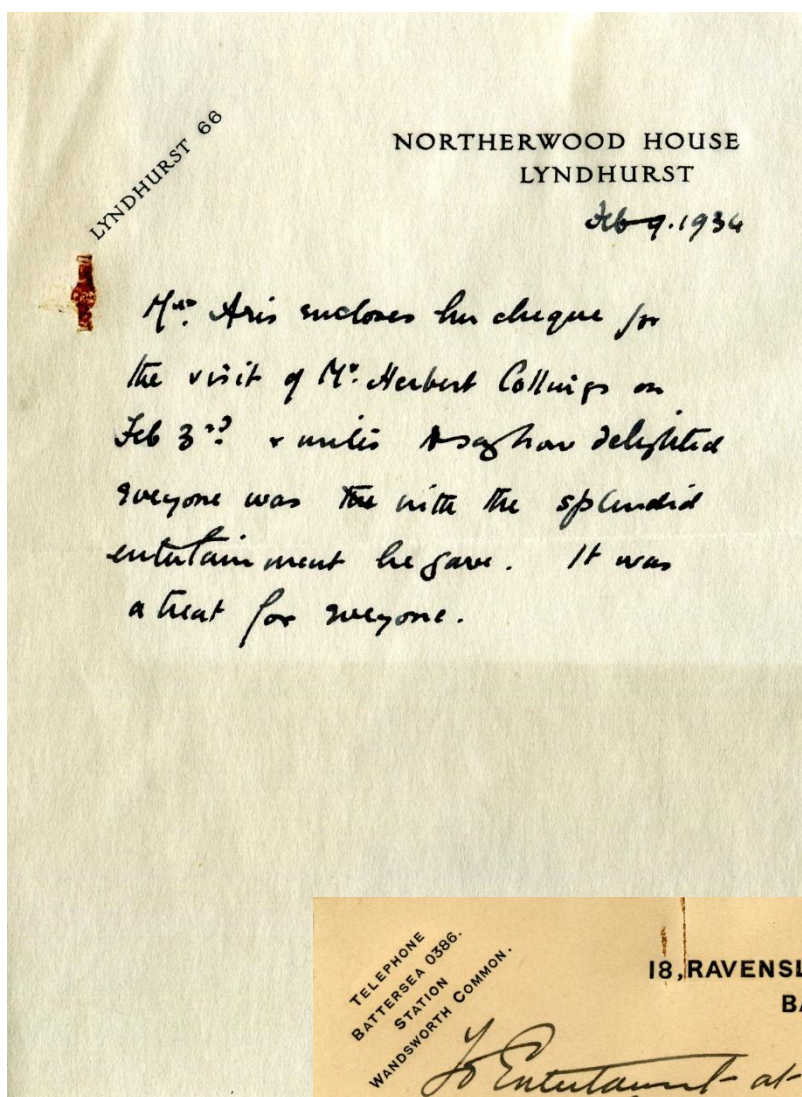 LYNDHURST 66
NORTHERWOOD HOUSE
LYNDHURST
Feb 9. 1934
Mrs. Aris encloses her cheque for
the visit of Mr. Herbert Collings on
Feb 3rd & writes to say how delighted
everyone was with the splendid
entertainment he gave. It was
a treat for everyone.
TELEPHONE
BATTERSEA 0386.
STATION
WANDSWORTH COMMON.
18, RAVENSL
BA
To Entertainment at